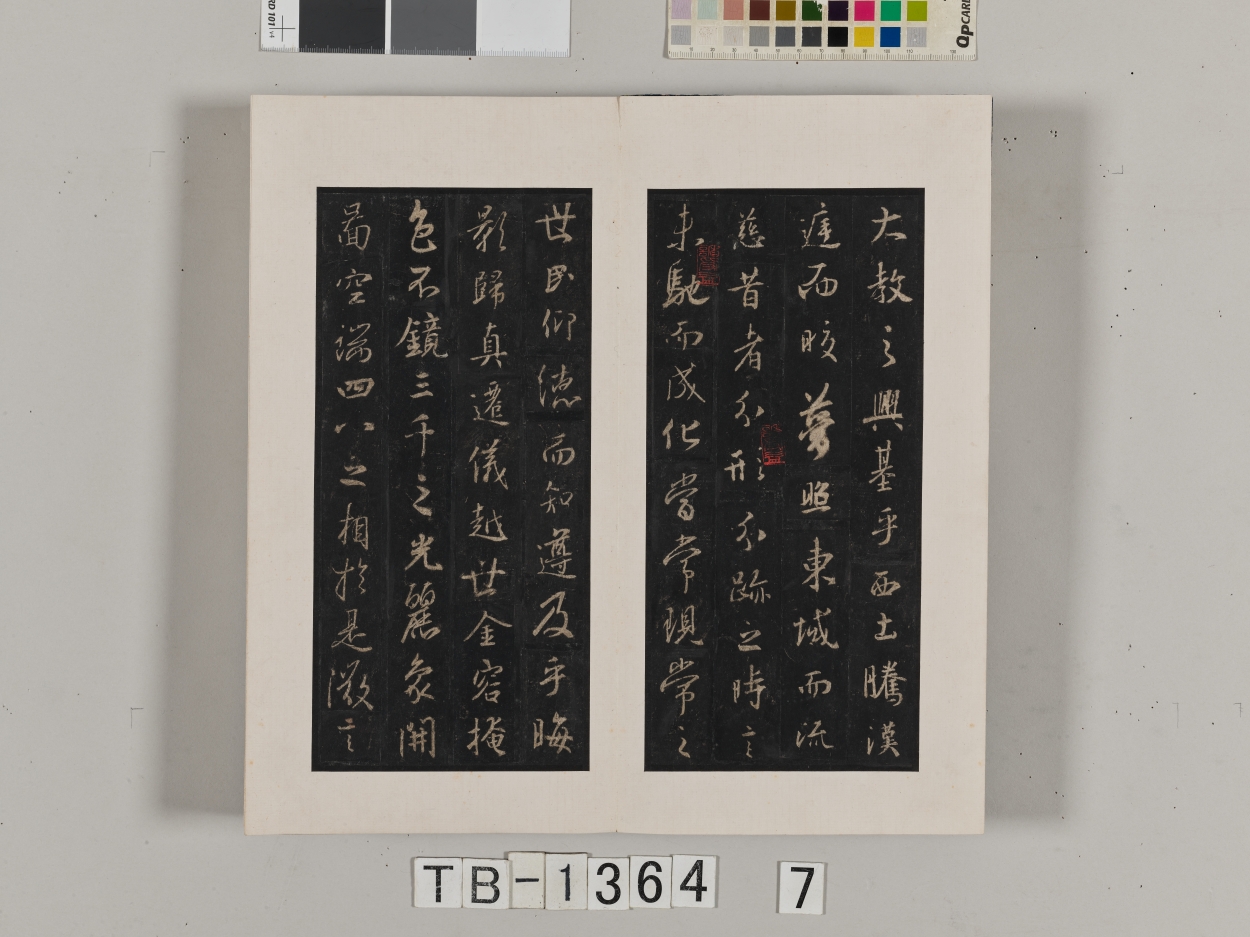 大教之興基乎西土騰漢
庭而皎夢照東域而流
慈昔者分形分跡之時言
未馳而成化當常現常之
世民仰德而知遵及乎晦
影歸真遷儀越世金容掩
色不鏡三千之光麗象開
圖空端四八之相於是微言
TB-1364 7
QpCARD 101 v4
QpCARD